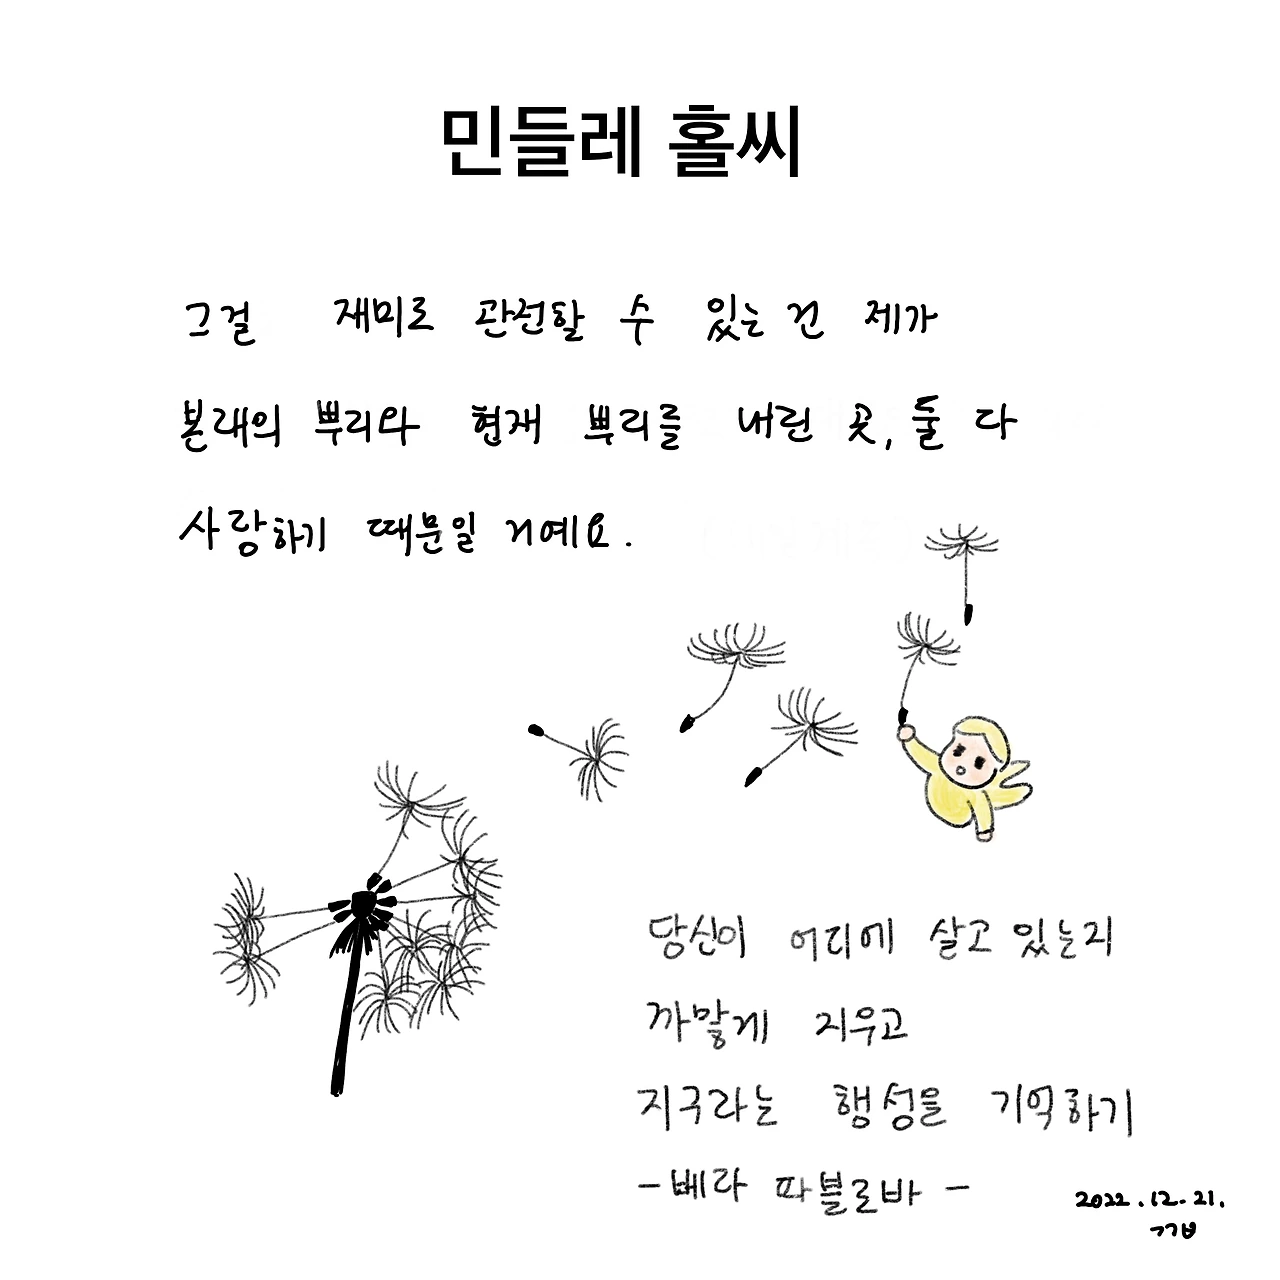 민들레 홀씨
그걸 재미로 관전할 수 있는 건 제가
본래의 뿌리와 현재 뿌리를 내린 곳, 둘 다
사랑하기 때문일 거예요.
당신이 어디에 살고 있는지
까맣게 지우고
지구라는 행성을 기억하기
-베라 파블로바-
2022.12.21.
ㄱㄱㅂ